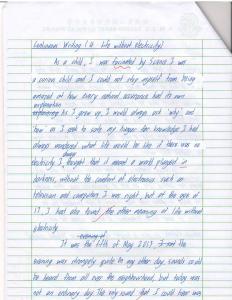 Continuous Writing (4. Life without Electricity)
As a child, I was fascinated by Science. I was
a curious child and I could not stop myself from being
amazed at how every natural occurrence had its own
explanation
explanation. As I grew up, I would always ask 'why' and
how as I seek to sate my hunger for knowledge. I had
always wondered what life would be like if there was no
electricity. I thought that it meant a world plunged in
darkness, without the comfort of electronics such as
television and computers. I was right, but at the age of
17, I had also found the other meaning of life without
electricity.
It was the 11th of May 2013.
evening was strangely quite to my other day, sounds could
be heard from all over the neighbourhood, but today was
not an ordinary day. The only sound that I could hear was